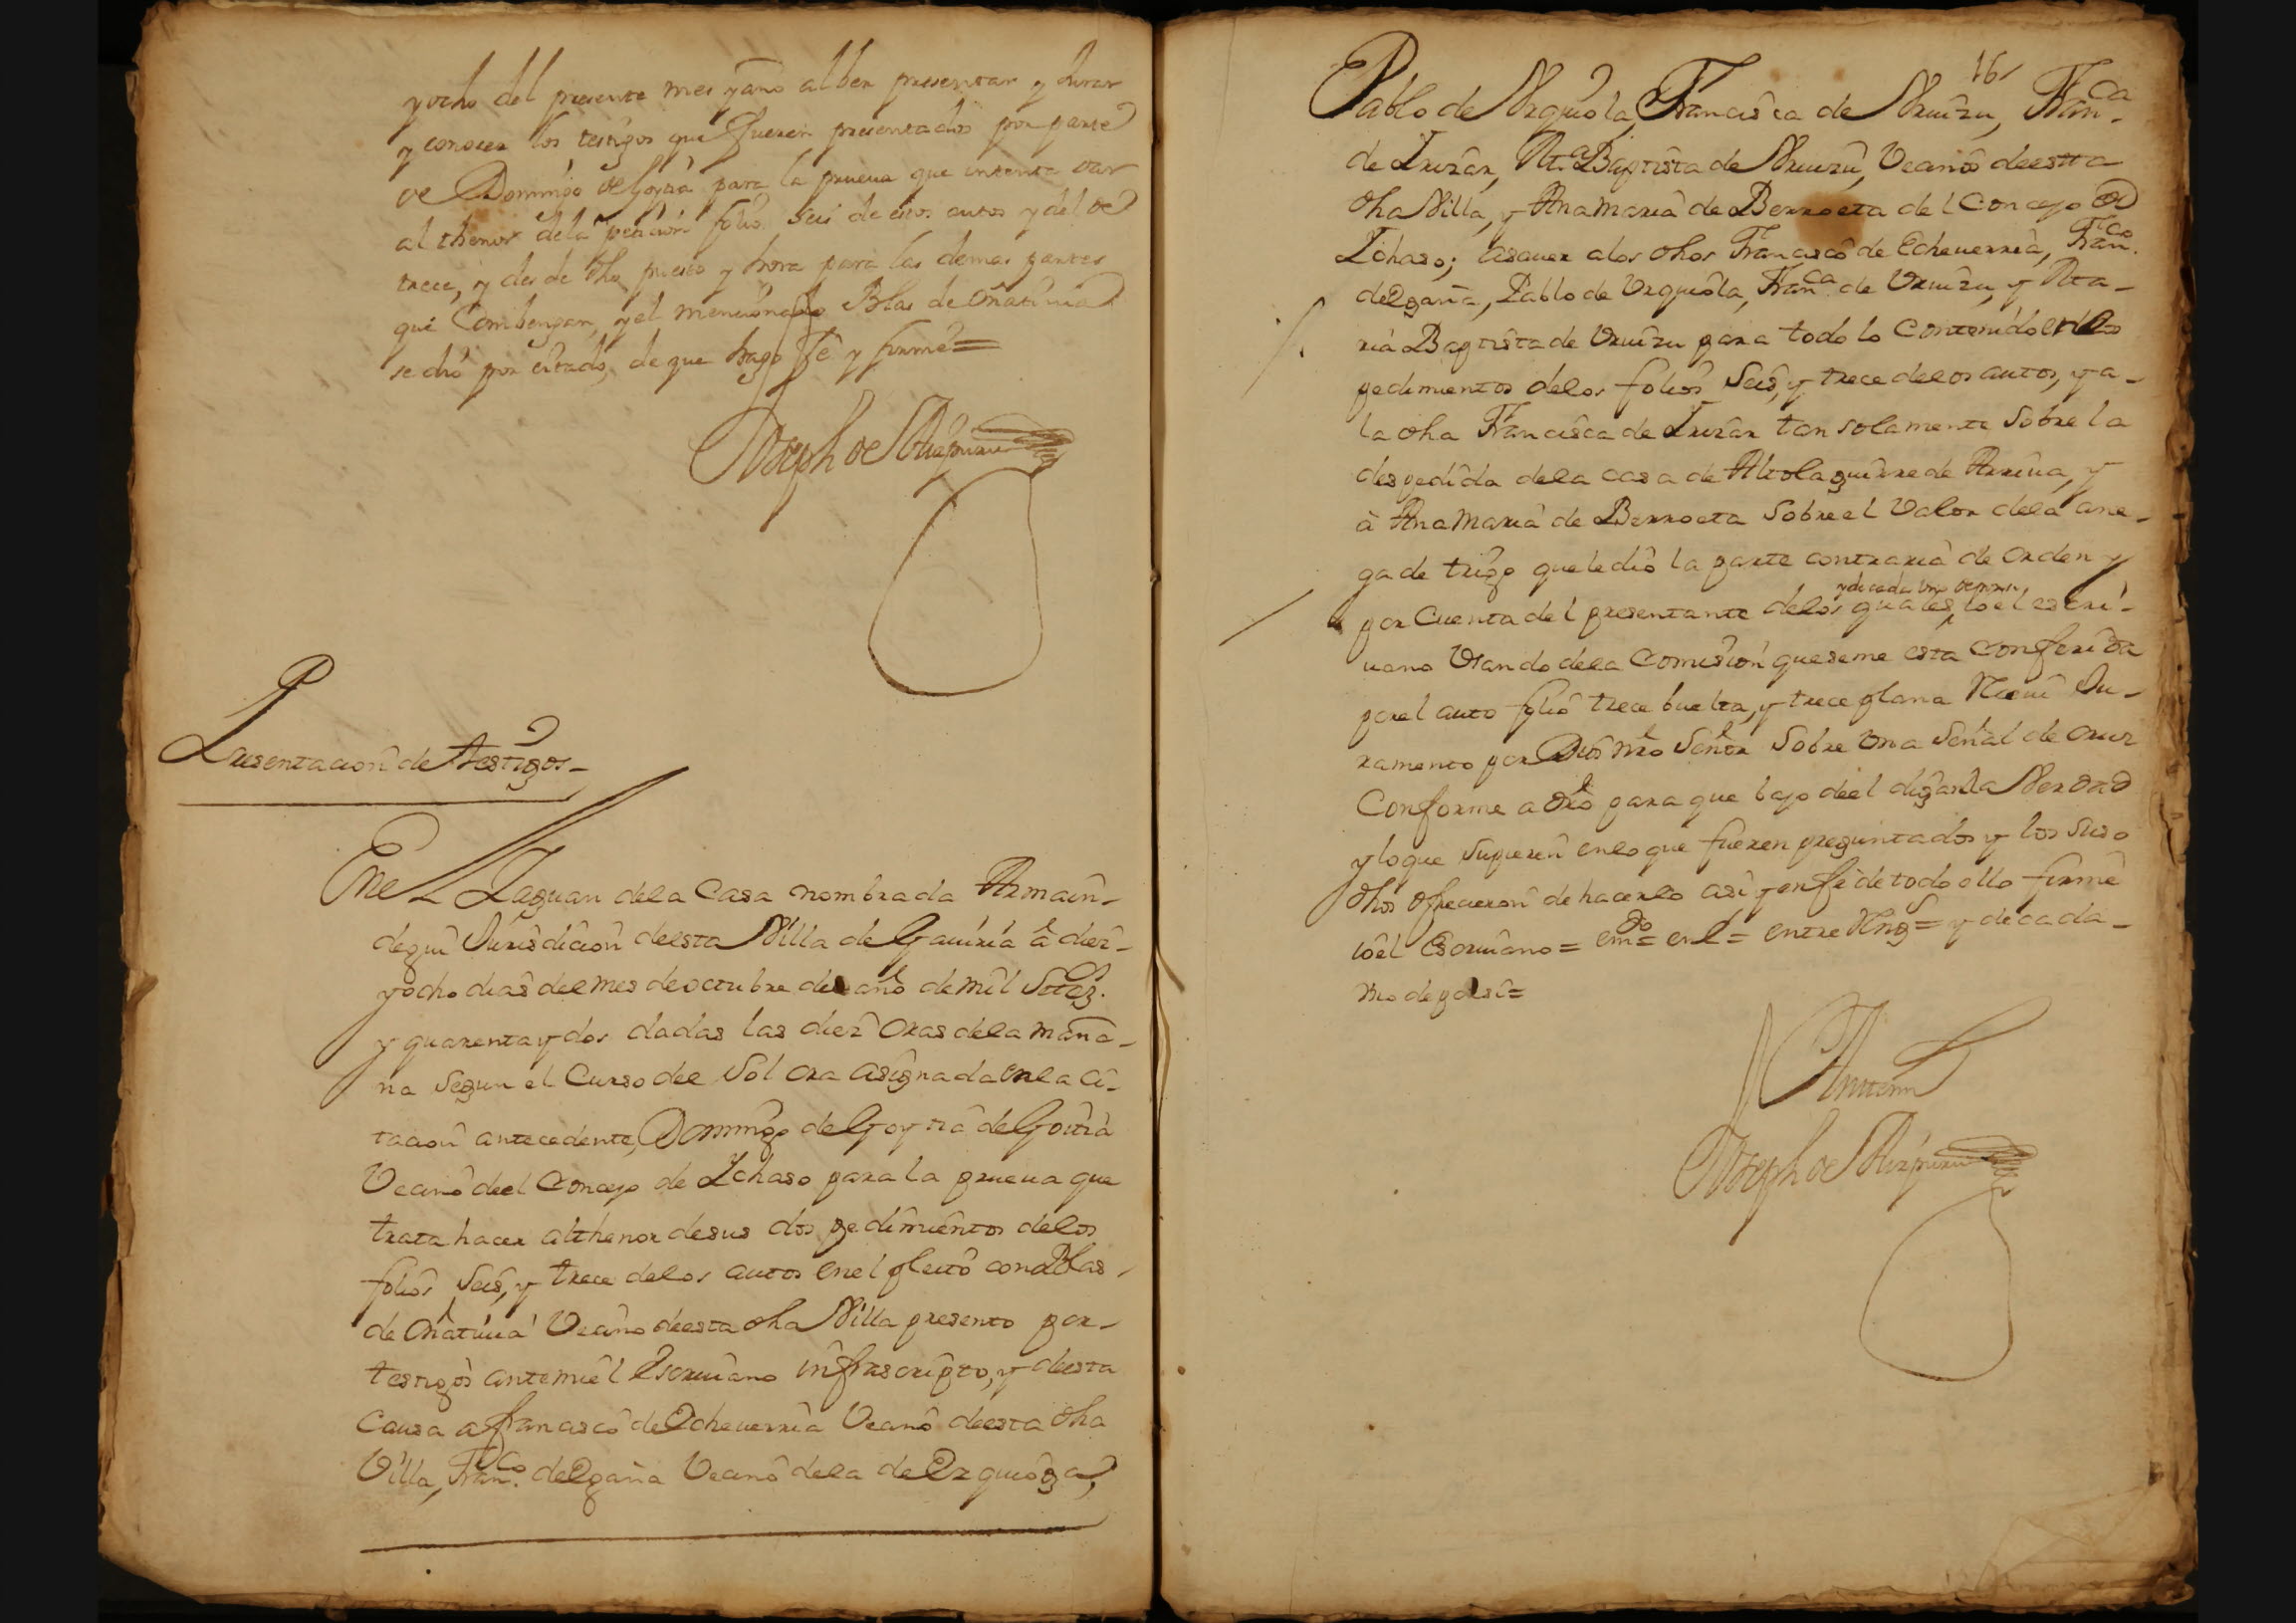 y ocho del presente mes y año al ber presentar y Jurar
y conocer los testigos que fueren presentados por parte
de Domingo de Goytia para la prueua que intenta dar
al thenor dela peticion folio seis de estos autos y del de
trece, y desde dho puesto y hora para las demas partes
que Combengan, y el mencionado Blas de Oñativia
se dió por citado, de que hago fê y firmé=
Joseph de Aizpuru
Presentacion de testigos-
En el Zaguan dela Casa nombrada Armain-
degui Jurisdicion deesta Villa de Gauiria â diez-
y ocho dias del mes de octubre del año de mil Setez.
y quarenta y dos dadas las diez Oras dela maña-
na segun el Curso del Sol ora asignada en la ci-
tacion antecedente, Domingo de Goytia de Goitia
Vecino del Concejo de Ichaso para la prueua que
trata hacer al thenor desus dos pedimientos delos
folios Seis, y trece delos autos en el pleito con Blas
de Oñatiuia Vecino deesta dha Villa presento por-
testigos ante mi el Escriuano infrascripto, y deesta
Causa a francisco de Echeuerria Vecino deesta dha
Villa, Fran.co de Egaña Vecino dela de Ezquioga,
16
Pablo de Vrquiola, Francisca de Vruizu, Fran.ca
de Irizar, Ma. Baptista de Vruizu, Vecinos deesta
dha Villa, y Ana Maria de Berroeta del Concejo de
Ichaso; asauer alos dhos Francisco de Echeuerria, Fran.co
de Egaña, Pablo de Vrquiola, Fran.ca de Vruizu, y Ma-
ria Baptista de Vruizu para todo lo Contenido en los
pedimientos delos folios Seis, y trece delos autos, y a-
la dha Francisca de Irizar tan solamente Sobre la
despedida dela casa de Altolaguirre de Arriua, y
â Ana Maria de Berroeta Sobre el Valor dela ane-
ga de trigo que le dio la parte contraria de orden y
y de cada Vno de por si
por Cuenta del presentante delos quales, io el escri-
uano Vsando dela Comision que se me esta Conferida
por el auto folio trece buelta, y trece plana Reciui Ju-
ramento por Dios nro Señor Sobre Vna Señal de cruz
Conforme a dro para que bajo de el digan la Verdad
y loque supieren en lo que fueren preguntados y los suso
dhos ofrecieron de hacerlo asi y en fê de todo ello firmé
io el Escriuano = emdo = en l = entre Rengs = y de cada-
Vno de por si=
Ante mi
Joseph de Aizpuru